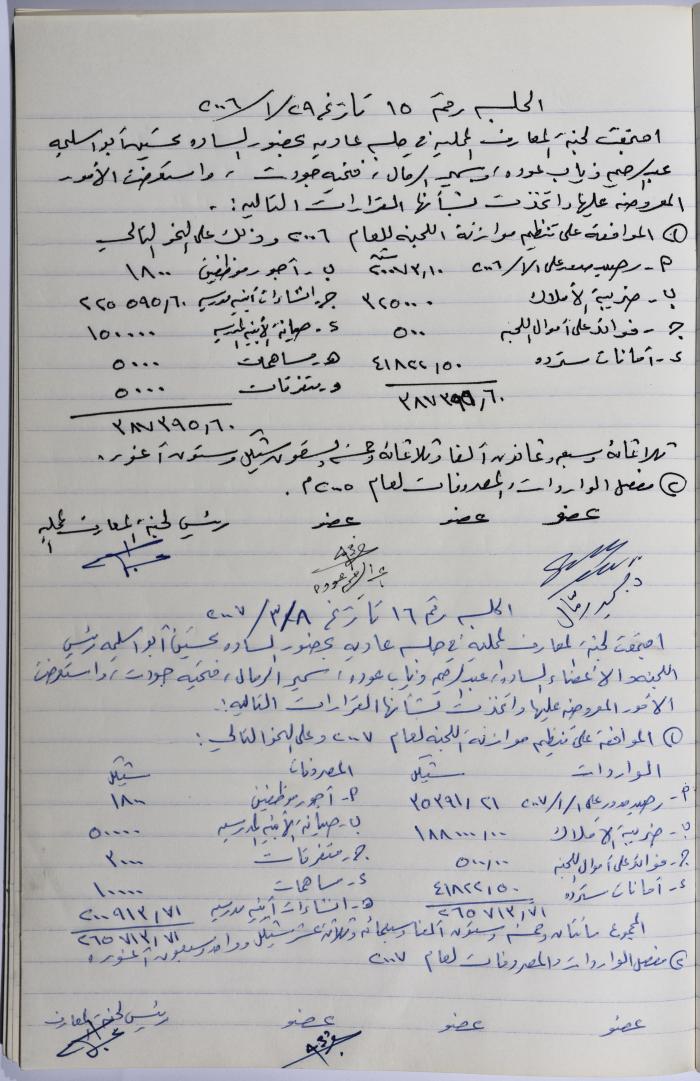 الجلسه رقم ١٥ تاريخ ٢٩/١/٢٠٠٦
اجتمعت لجنة المعارف المحلية في جلسه عاديه بحضور الساده حسين أبو اسليمه
عبد الرحيم ذياب عوده، وسمير الرمال، فتحيه جودت، واستعرضت الأمور
المعروضه عليها واتخذت بشأنها القرارات التاليه:
① الموافقة على تنظيم موازنة اللجنه للعام ٢٠٠٦ وذلك على النحو التالي
٢٠٠٧٣,١٠ ب - أجور موظفين ١٨٠٠
ب - ضريبة الأملاك ٣٢٥٠٠٠ ج - انشاءات أبنيه مدرسيه ٢٢٥٥٩٥,٦٠
ج - فوائد على أموال اللجنه ٥٠٠ د - صيانة الأبنية المدرسيه ١٥٠٠٠٠
د - أمانات مسترده ٤١٨٢٢,٥٠ هـ - مساهمات ٥٠٠٠
و - متفرقات ٥٠٠٠
٣٨٧٣٩٥,٦٠
٣٨٧٣٩٥,٦٠
ثلاثمائة وسبعه وثمانون ألفا وثلاثمائة وخمسه وتسعون شيكل وستون أغوره.
② مفصل الواردات والمصروفات لعام ٢٠٠٥م.
عضو عضو عضو رئيس لجنة المعارف المحلية
د. سمير رمّال
الجلسه رقم ١٦ تاريخ ٨/٣/٢٠٠٧
اجتمعت لجنة المعارف المحلية في جلسه عاديه بحضور الساده حسين أبو اسليمه رئيس
اللجنه والأعضاء الساده، عبد الرحيم ذياب عوده، سمير الرمال، فتحيه جودت، واستعرضت
الأمور المعروضه عليها واتخذت بشأنها القرارات التاليه:
① الموافقة على تنظيم موازنة اللجنه لعام ٢٠٠٧ وعلى النحو التالي:
الواردات شيكل المصروفات شيكل
أ - رصيد مدور على ١/١/٢٠٠٧ ٣٥٣٩١,٢١ أ - أجور موظفين ١٨٠٠
ب - ضريبة الأملاك ١٨٨٠٠٠,٠٠ ب - صيانة الأبنية المدرسيه ٥٠٠٠٠
ج - فوائد على أموال اللجنه ٥٠٠,٠٠ ج - متفرقات ٣٠٠٠
د - أمانات مسترده ٤١٨٢٢,٥٠ د - مساهمات ١٠٠٠٠
٢٦٥٧١٣,٧١ هـ - انشاءات أبنيه مدرسيه ٢٠٠٩١٣,٧١
المجموع مائتان وخمسه وستون ألفا وسبعمائه وثلاثة عشر شيكل وواحد وسبعون أغوره ٢٦٥٧١٣,٧١
② مفصل الواردات والمصروفات لعام ٢٠٠٧
عضو عضو عضو رئيس لجنة المعارف